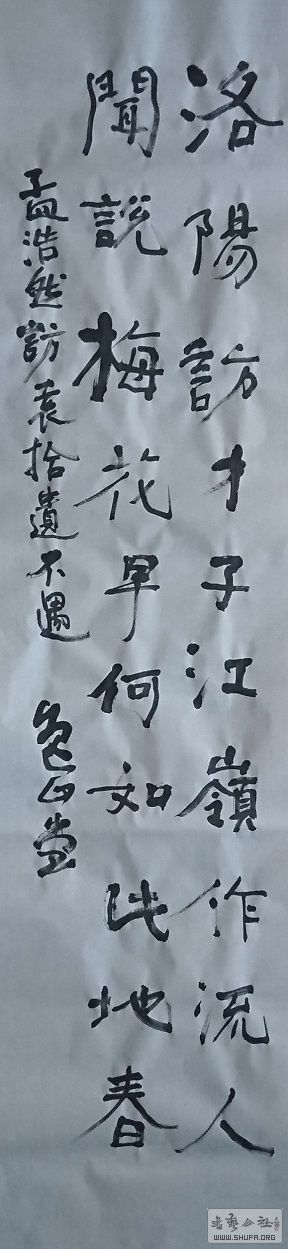 洛陽訪才子江嶺作流人
聞說梅花早何如此地春
孟浩然訪袁拾遺不遇
書藝公社
WWW.SHUFA.ORG